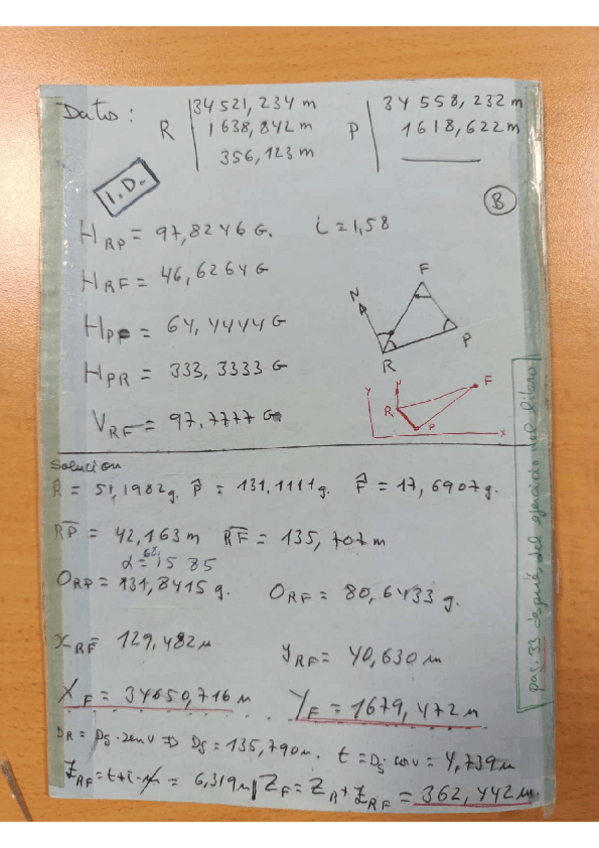 Datos: R 34521,234 m P 34558,232 m
1638,842 m 1618,622 m
356,123 m
I.D.
B
H RP = 97,8246 G. i = 1,58
H RF = 46,6264 G
H PF = 64,4444 G
H PR = 333,3333 G
V RF = 97,7777 G
N F P R
Y R P F X
Solución
R̂ = 51,1982 g. P̂ = 131,1111 g. F̂ = 17,6907 g.
RP = 42,163 m RF = 135,707 m
α = 68,1585
O RP = 131,8415 g. O RF = 80,6433 g.
X RF = 129,482 m Y RF = 40,630 m
X F = 34650,716 m Y F = 1679,472 m
D R = Ds · sen v ⇒ Ds = 135,790 m. t = Ds cos v = 4,739 m
Z RF = t + i - m = 6,319 m Z F = Z R + Z RF = 362,442 m.
pag. 33 después del ejercicio del libro